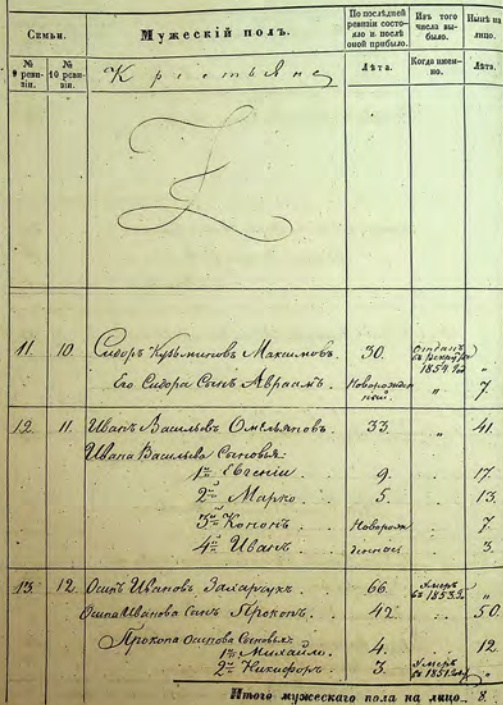 Семьи. Мужескій полъ. По послѣдней ревизіи состояло и послѣ оной прибыло. Изъ того числа выбыло. Нынѣ на лицо.
№ 9 ревизіи. № 10 ревизіи. Крестьяне Лѣта. Когда именно. Лѣта.
11. 10. Сидоръ Кузьминовъ Максимовъ. 30. Отданъ въ рекруты 1854 г. „
Его Сидора Сынъ Авраамъ. Новорожденный. „ 7.
12. 11. Иванъ Васильевъ Омельяновъ. 33. „ 41.
Ивана Васильева Сыновья:
1й Евгеній 9. 17.
2й Марко 5. 13.
3й Кононъ Новорож 7.
4й Иванъ денной 3.
13. 12. Осипъ Ивановъ Захарчукъ. 66. Умеръ въ 1853 г. „
Осипа Иванова сынъ Прокопъ. 42. 50.
Прокопа Осипова Сыновья:
1й Михайло. 4. 12.
2й Никифоръ. 3. Умеръ въ 1851 г. „
Итого мужескаго пола на лицо 8.